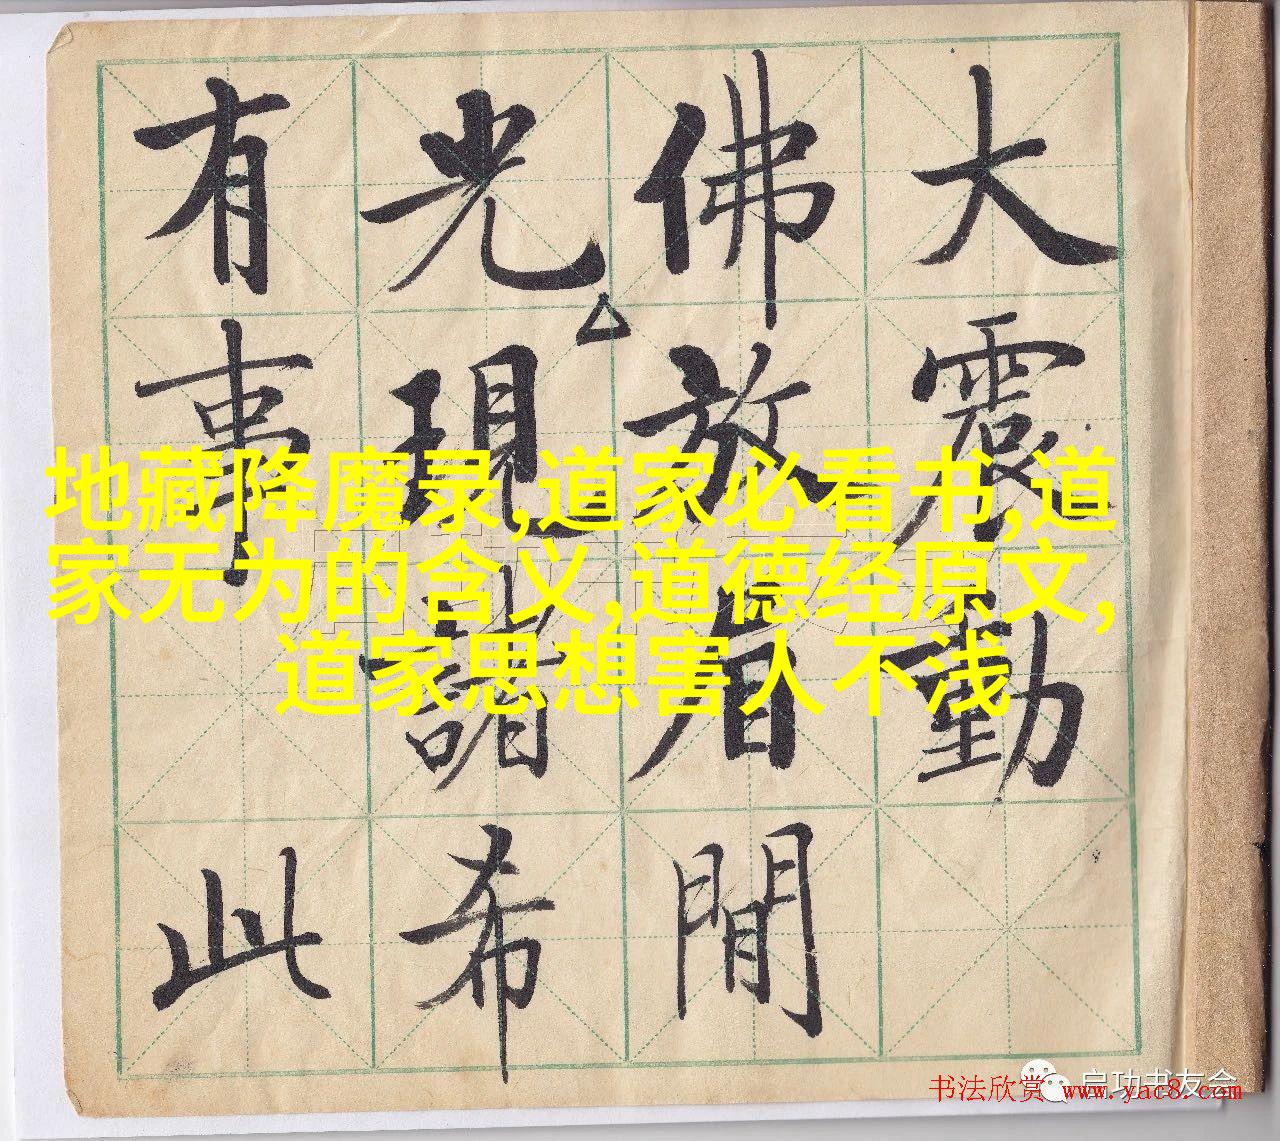 大震動
佛放眉間
光現諸希
有事 此
地藏降魔录,道家必看书,道
家无为的含义,道德经原文,
道家思想害人不浅
启功书友会
书法欣赏 www.yac8.com